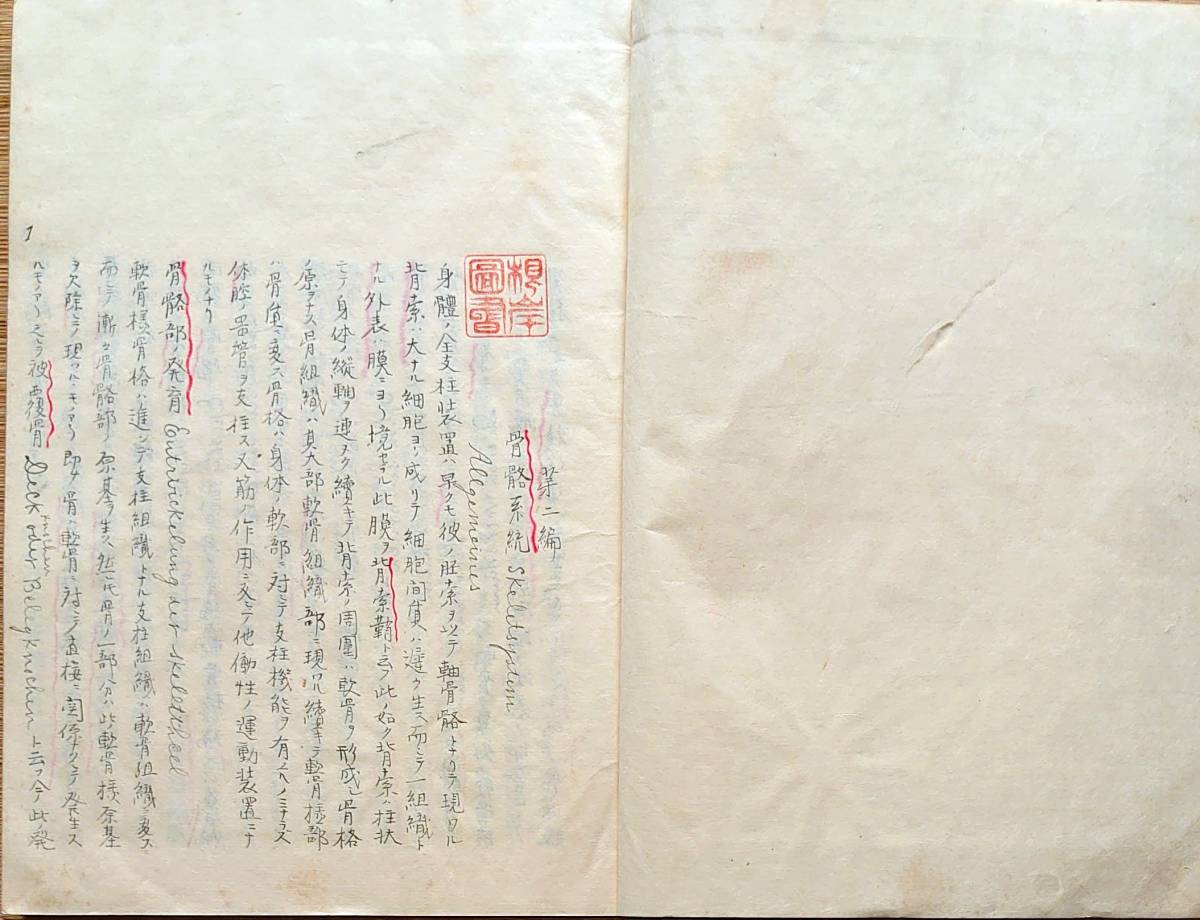 根岸圖書
第二編
骨骼系統 Skeletsystem
Allgemeines
身體ノ全支柱装置ハ早クモ彼ノ胚索ヲ以テ軸骨骼トナリテ現ワル
背索ハ大ナル細胞ヨリ成リテ細胞間質ハ遅ク生ス而シテ一組織ト
ナル外表ハ膜ニヨリ境セラル此膜ヲ背索鞘ト云フ此ノ如ク背索ハ柱状
ニテ身体ノ縦軸ヲ連ヌク續キテ背索ノ周圍ハ軟骨ヲ形成シ骨格
ノ原ヲナス骨組織ハ其大部軟骨組織部ニ現ワレ續キテ軟骨様部
ハ骨質ニ変ス骨格ハ身体ノ軟部ニ対シテ支柱機能ヲ有スルノミナラス
体腔ノ畄管ヲ支柱ス又筋ノ作用ニ交シテ他働性ノ運動装置ニナ
ルモノナリ
骨骼部ノ発育 Entwickelung der Skelettheel
軟骨様骨格ハ進ンデ支柱組織トナル支柱組織ハ軟骨組織ニ変ス
而シテ漸々骨骼部ノ原基ヲ生ス然レ𪜈骨ノ一部分ハ此ノ軟骨様原基
ヲ欠除シテ現ワルヽモノアリ即チ骨ハ軟骨ニ対シテ直接ニ関係ナクシテ発生ス
ルモノアリ之レヲ被覆骨 Deck knochen oder Belegknochen ト云フ今此ノ発
1